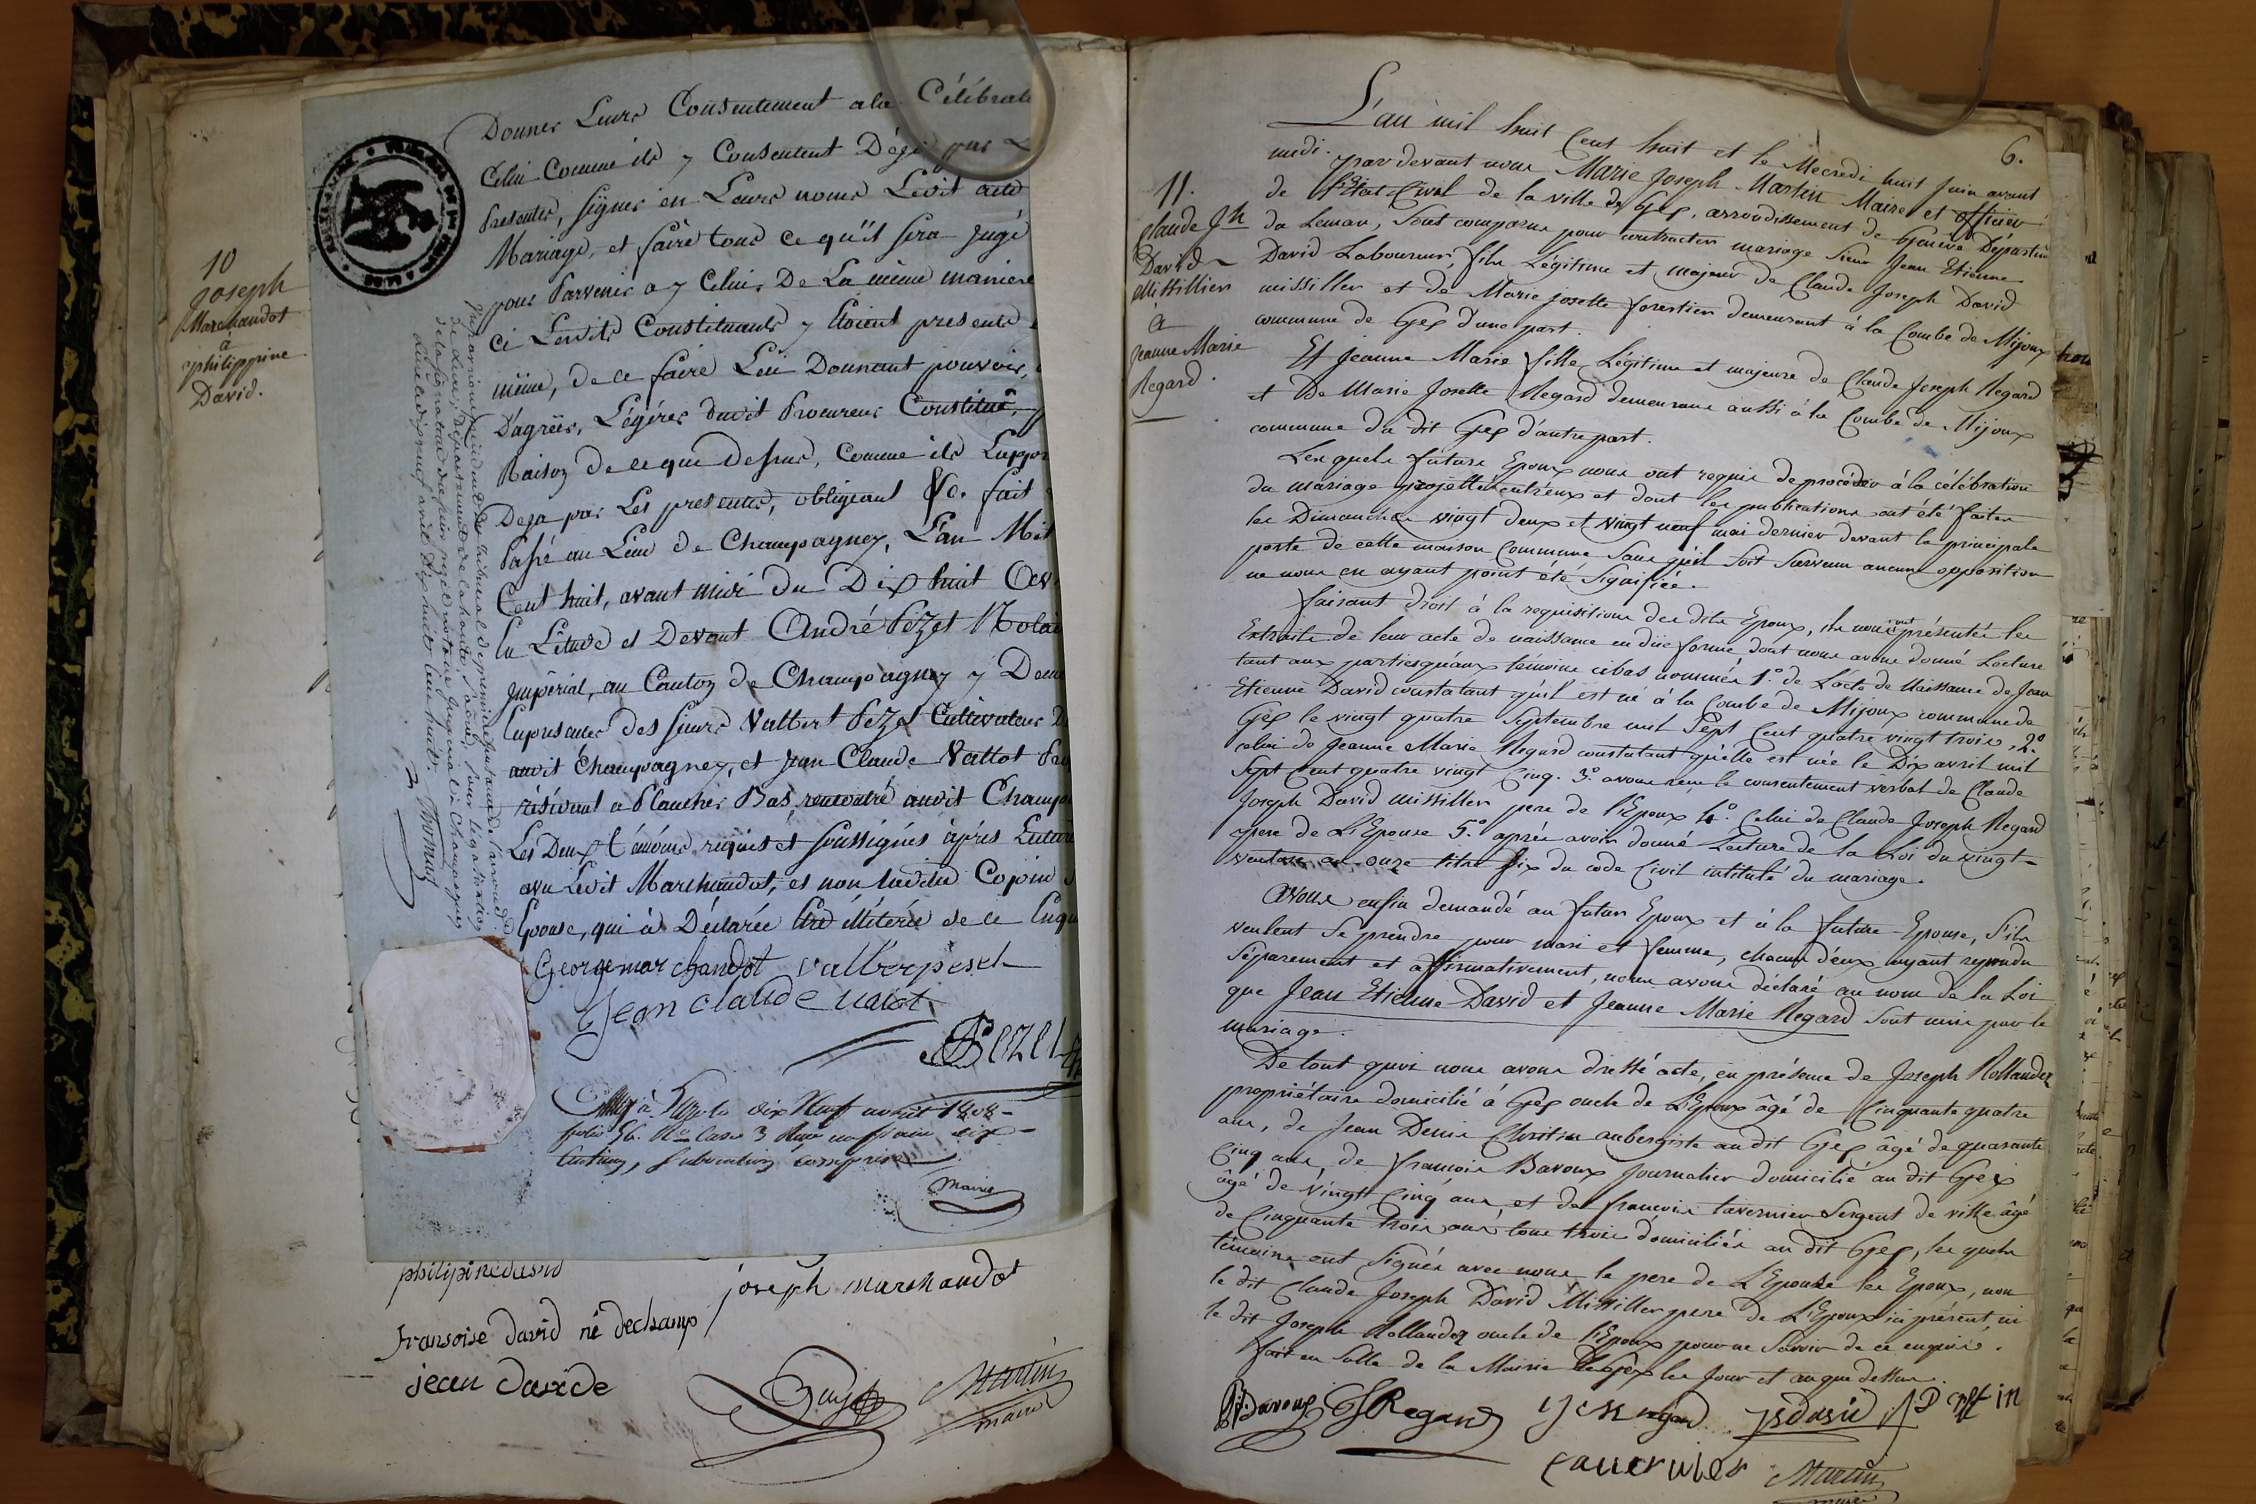 10
Joseph
Marchandot
à
philippine
David.
Donner Leurs Consentement ala Célébrati
Celui Comme ils y Consentent Déjà par L
Presentes, signer en Leurs noms Ledit acte
Mariage, et faire tous ce qu'il sera jugé
pour Parvenir a y Celui, De La même maniere
ci Lesdits Constituants y Etoient presents
même, de ce faire Leu Donnant pouvoir,
D'agréer, Légérer dudit Procureur Constitué,
Raison de ce que dessus, Comme ils Lappr
Deja par Les presentes, obligeant &c. fait
Passé au Lieu de Champagney, L'an Mil
Cent huit, avant midi du Dix huit Avr
En L'étude et Devant André Pezet Notai
Impérial, au Canton de Champagney y Deme
En presences des sieurs Valbert Pezet Cultivateur D
audit Champagney, et Jean Claude Vallot Pro
résidant a Plancher Bas, rencontré audit Champa
Les Deux témoins requis et soussignés après Lecture
avec Ledit Marchandot, et non Ladite Cojoin
Epouse, qui à Déclarée être illiterée de ce Enqu
George marchandot valberpeset
Jean claude valot
Pezet
à Lure le dix Neuf avril 1808
folio 56. Ro. Case 3 Reçu un franc dix
Centimes, subvention comprise
Thomas
philipinedavid
joseph marchandot
fransoise david né dechamp
jean davide
Martin
maire
6.
11.
Claude Jh
David
Missillier
a
Jeanne Marie
Regard.
L'an mil huit Cent huit et le Mecredi huit Juin avant
midi. par devant nous Marie Joseph Martin Maire et officier
de l'Etat Civil de la ville de Gex, arrondissement de Genève Départemt
du Leman, sont comparus pour contracter mariage Sieur Jean Etienne
David Laboureur, fils Légitime et majeur de Claude Joseph David
missillier et de Marie josette forestier demeurant à la Combe de Mijoux
commune de Gex d'une part.
Et Jeanne Marie fille Légitime et majeure de Claude Joseph Regard
et De Marie Josette Regard demeurans aussi à la Combe de Mijoux
commune du dit Gex d'autre part.
Lesquels futurs Epoux nous ont requis de procéder à la célébration
du mariage projetté entr'eux et dont les publications ont été faites
les Dimanches vingt deux et vingt neuf mai dernier devant la principale
porte de cette maison Commune sans qu'il soit survenu aucune opposition
ne nous en ayant point été signifiée.
faisant droit à la requisition des dits Epoux, ils nous ont présentés les
Extraits de leur acte de naissance en düe forme dont nous avons donné Lecture
tant aux parties qu'aux témoins cibas nommés 1.º de L'acte de Naissance de Jean
Etienne David constatant qu'il est né à la Combe de Mijoux commune de
Gex le vingt quatre Septembre mil Sept Cent quatre vingt trois, 2º
celui de Jeanne Marie Regard constatant qu'elle est née le Dix avril mil
Sept Cent quatre vingt Cinq. 3º. avons reçu le consentement verbal de Claude
Joseph David missillier pere de l'Epoux 4º. Celui de Claude Joseph Regard
pere de L'Epouse 5.º après avoir donné Lecture de la Loi du vingt-
ventose an onze titre six du code Civil intitulé du mariage.
Avons enfin demandé au futur Epoux et à la future Epouse, S'ils
veulent se prendre pour mari et femme, chacun d'eux ayant repondu
séparement et affirmativement, nous avons déclaré au nom de la Loi
que Jean Etienne David et Jeanne Marie Regard sont unis par le
mariage.
De tout quoi nous avons dressé acte, en présence de Joseph Rollandez
propriétaire domicilié à Gex oncle de L'Epoux âgé de Cinquante quatre
ans, de Jean Denis Christin aubergiste au dit Gex âgé de quarante
Cinq ans, de françois Bavoux journalier domicilié au dit Gex
âgé de vingt Cinq ans, et de françois tavernier Sergent de ville âgé
de Cinquante trois ans tous trois domiciliés au dit Gex, les quels
témoins ont signés avec nous le pere de L'Epouse les Epoux, non
le dit Claude Joseph David Missillier pere de L'Epoux ici présent, ni
le dit Joseph Rollandez oncle de l'Epoux pour ne Savoir de ce enquis.
fait en Salle de la Mairie de Gex les Jour et an que dessus.
Bavoux Regard
tavernier Martin
maire